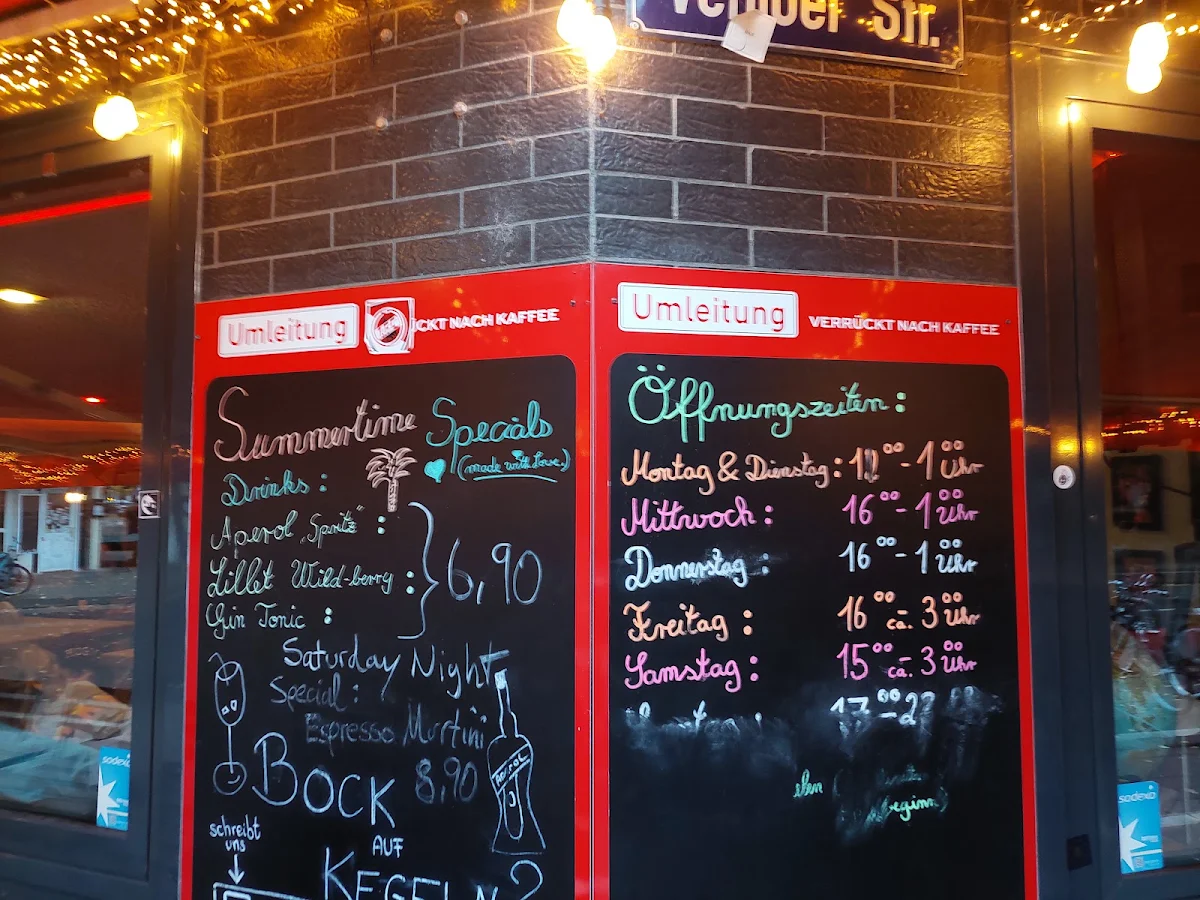 Str.
Umleitung
ÜCKT NACH KAFFEE
Summertime Specials
(made with Love)
Drinks :
Aperol „Spritz“ :
Lillet Wild-berry :
Gin Tonic :
6,90
Saturday Night
Special :
Espresso Martini
8,90
BOCK
AUF
KEGELN?
schreibt
uns
Umleitung
VERRÜCKT NACH KAFFEE
Öffnungszeiten :
Montag & Dienstag : - 1 00 Uhr
Mittwoch : 16 00 - 1 00 Uhr
Donnerstag : 16 00 - 1 00 Uhr
Freitag : 16 00 ca. 3 00 Uhr
Samstag : 15 00 ca. 3 00 Uhr
17 00
sodexo
sodexo